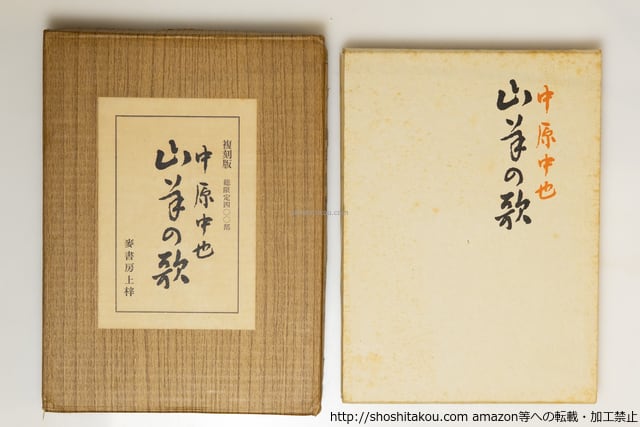 復刻版 総限定四〇〇部
中原中也
山羊の歌
麥書房上梓
中原中也
山羊の歌
http://shoshitakou.com amazon等への転載・加工禁止